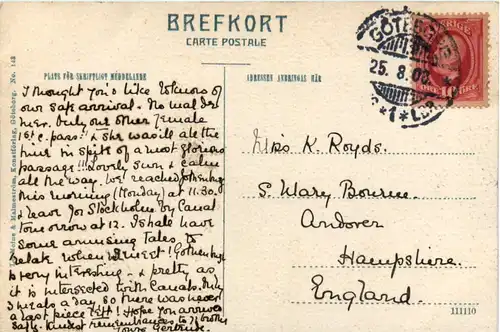 BREFKORT
CARTE POSTALE
PLATS FÖR SKRIFTLIGT MEDDELANDE
ADRESSEN ANBRINGAS HÄR
GÖTEBORG
SVERIGE
25. 8. 
*1* LBR
I thought you'd like to know of
our safe arrival. No
her. Only one other female
1st c. pass: & she was ill all the
time in spite of a most glorious
passage!!! Lovely sun & calm
all the way. We reached
this morning (Monday) at 11.30
& leave for Stockholm by Canal
tomorrow at 12. I shall have
some amusing tales to
relate when we meet! Gothenburg
is very interesting - & pretty as
it is intersected with Canals. Only
3 meals a day, so there was never
a last piece left! Hope you arrived
safely. Kindest remembrances to yr brother
Yours Gertrude.
Miss K. Royds.
S. Mary Bourne.
Andover
Hampshire.
England.
111110
Konstförlag, Göteborg. No. 143